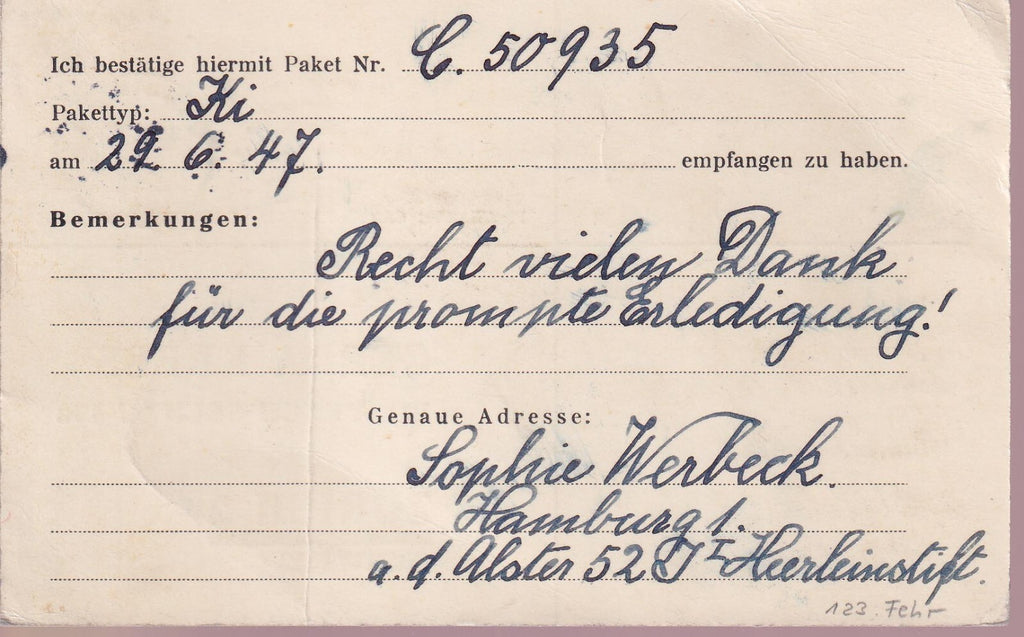 Ich bestätige hiermit Paket Nr. C. 50935
Pakettyp: Ki
am 29. 6. 47. empfangen zu haben.
Bemerkungen:
Recht vielen Dank
für die prompte Erledigung!
Genaue Adresse:
Sophie Werbeck.
Hamburg 1.
a. d. Alster 52 I Heerleinstift.
123. Fehr